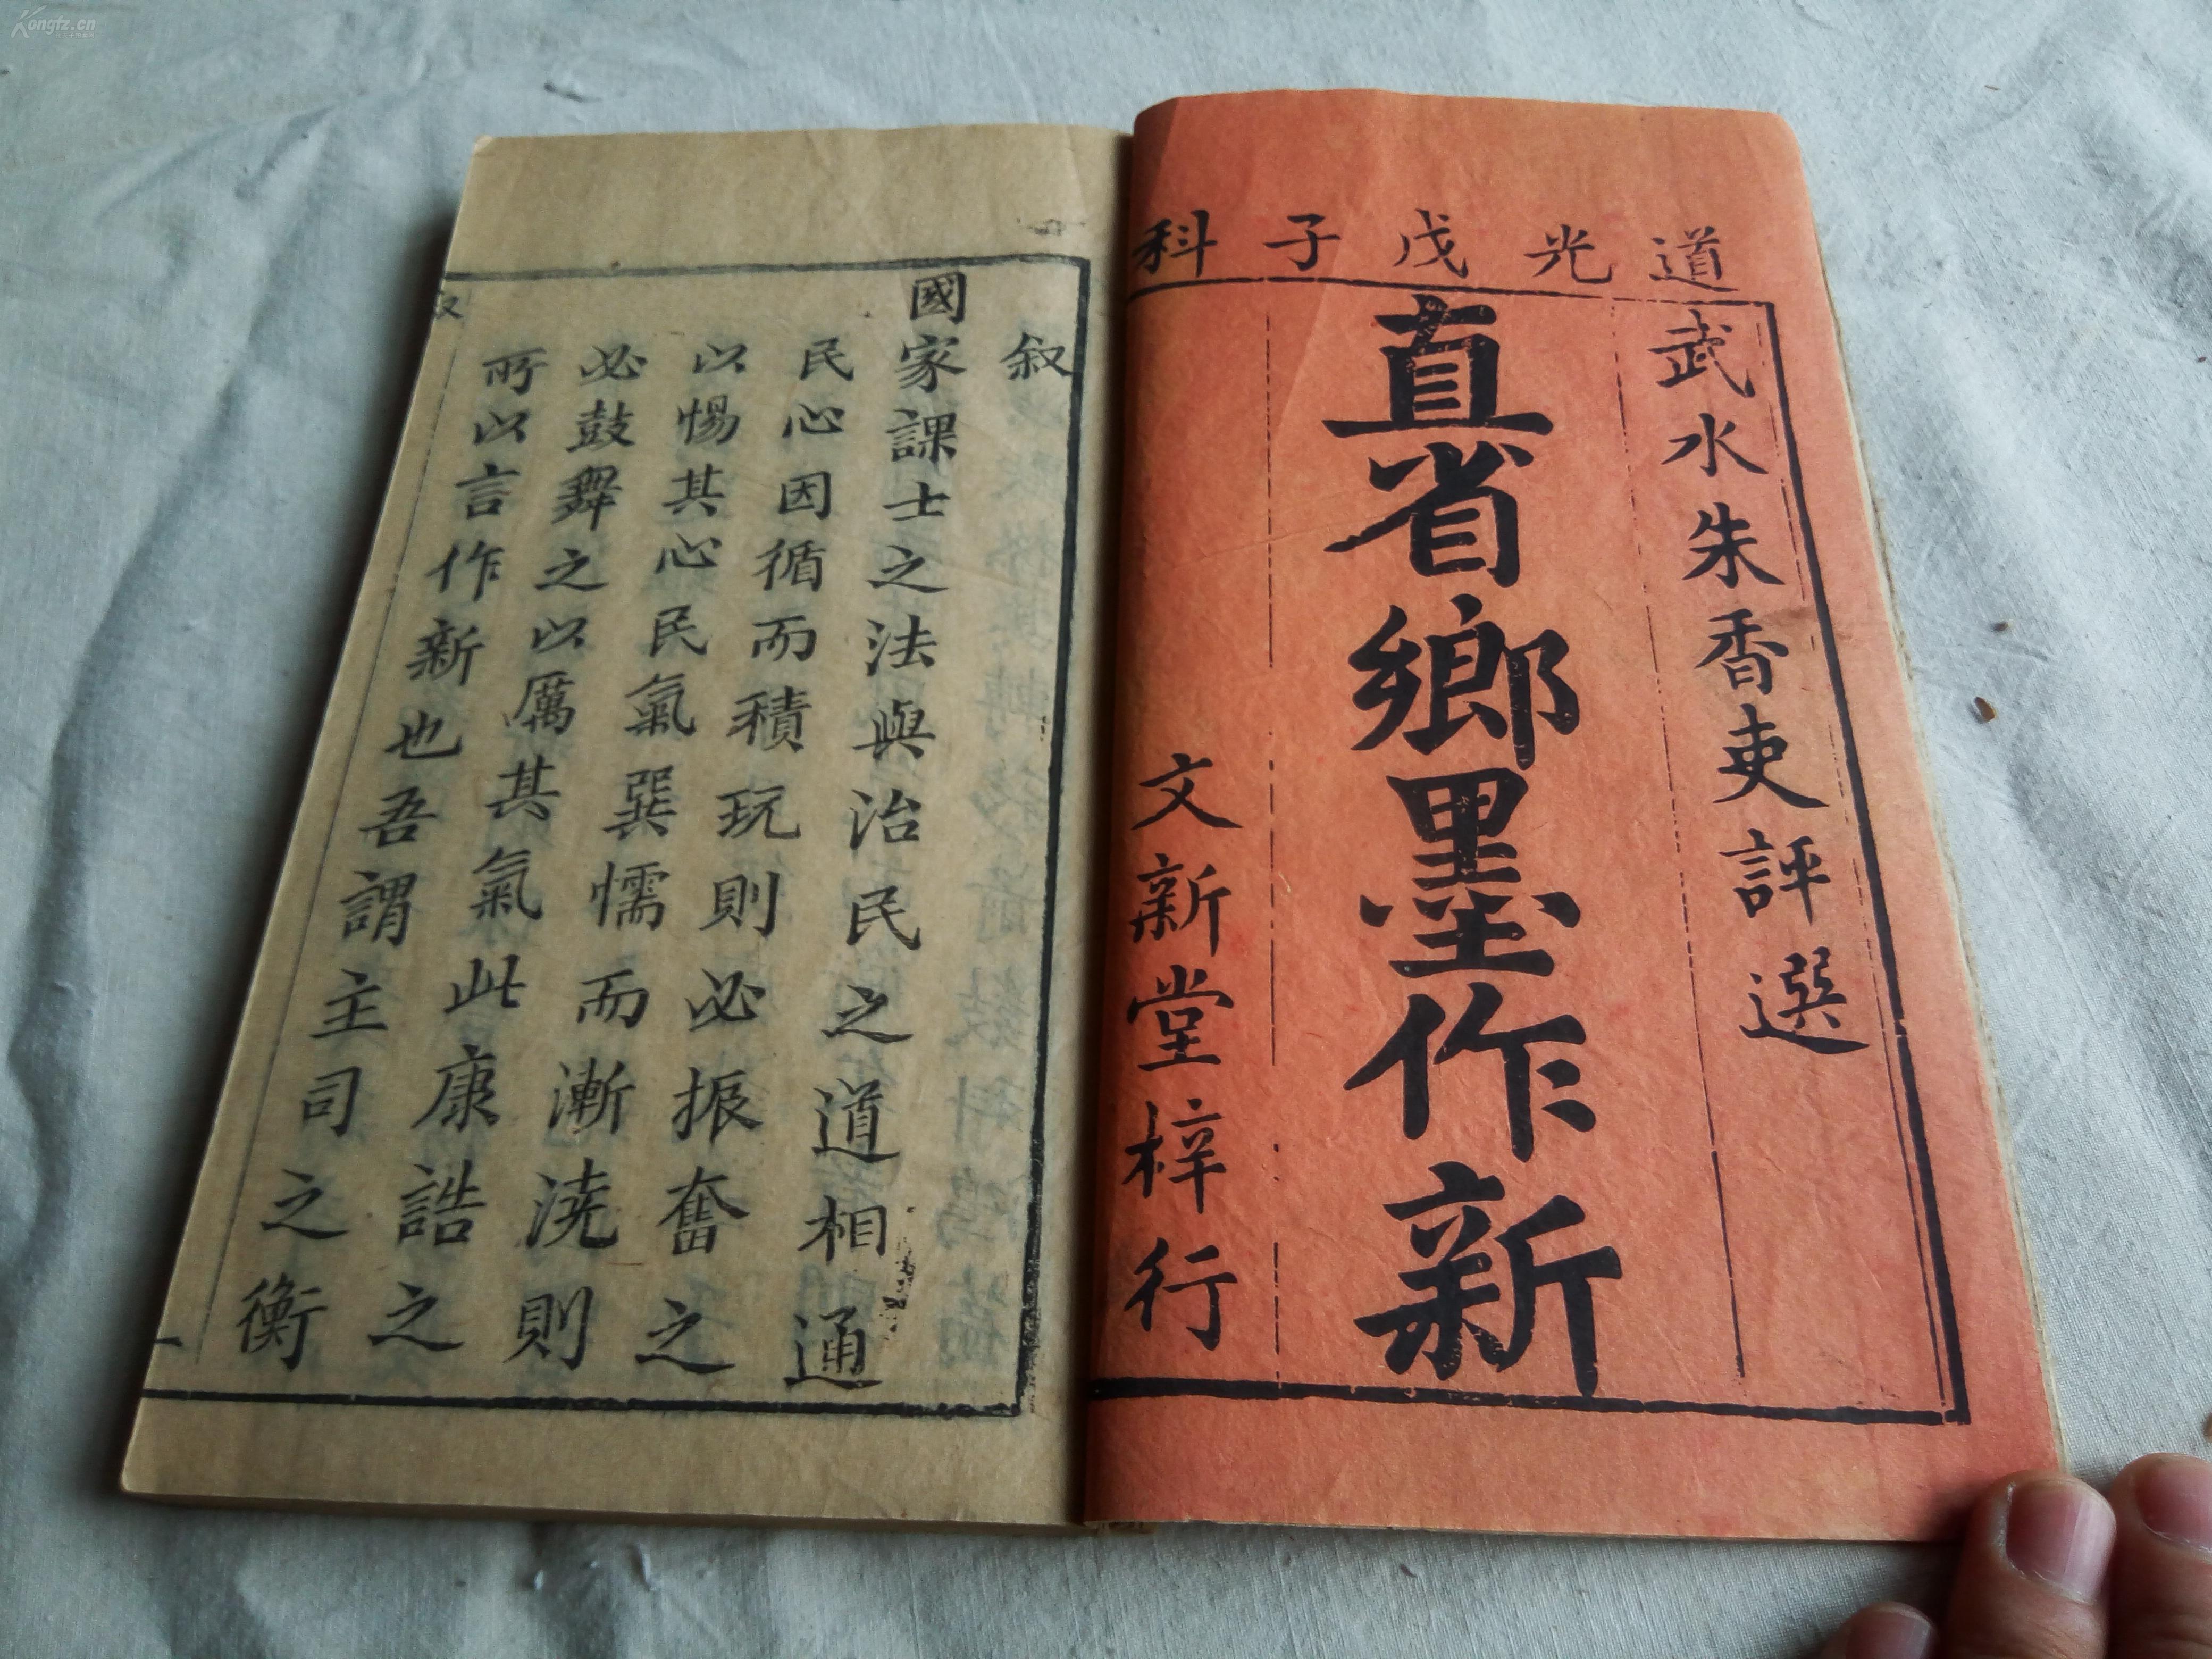 道光戊子科
武水朱香吏評選
直省鄉墨作新
文新堂梓行
叙
國家課士之法與治民之道相通
民心因循而積玩則必振奮之
以惕其心民氣巽懦而漸澆則
必鼓舞之以厲其氣此康誥之
所以言作新也吾謂主司之衡
一
Kongfz.cn